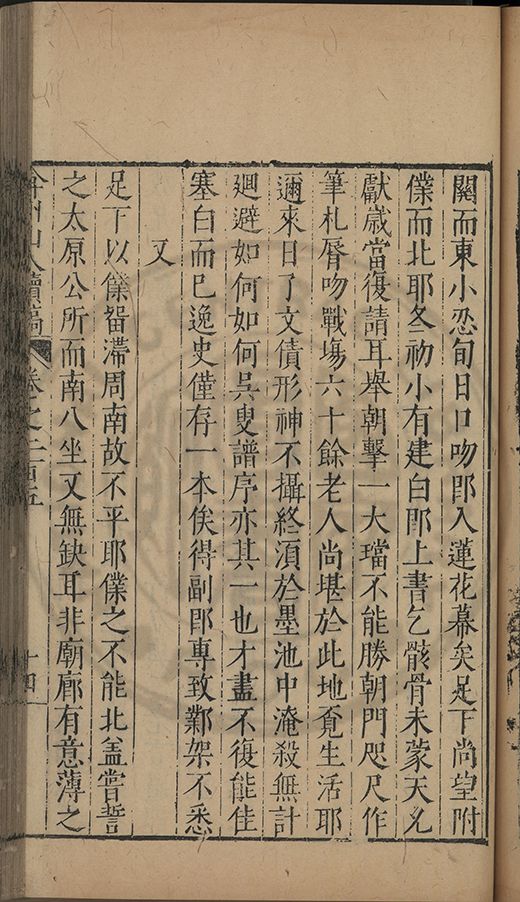 關而東小忍旬日口吻即入蓮花幕矣足下尚望附
僕而北耶冬初小有建白即上書乞骸骨未蒙天允
獻歲當復請耳舉朝擊一大璫不能勝朝門咫尺作
筆札脣吻戰塲六十餘老人尚堪於此地覓生活耶
邇來日了文債形神不攝終須於墨池中淹殺無計
廻避如何如何吳叟譜序亦其一也才盡不復能佳
塞白而已逸史僅存一本俟得副即專致鄴架不悉
又
足下以僕畱滯周南故不平耶僕之不能北盖嘗誓
之太原公所而南八坐又無缺耳非廟廊有意薄之
弇州山人續稿 卷之二百五 十四